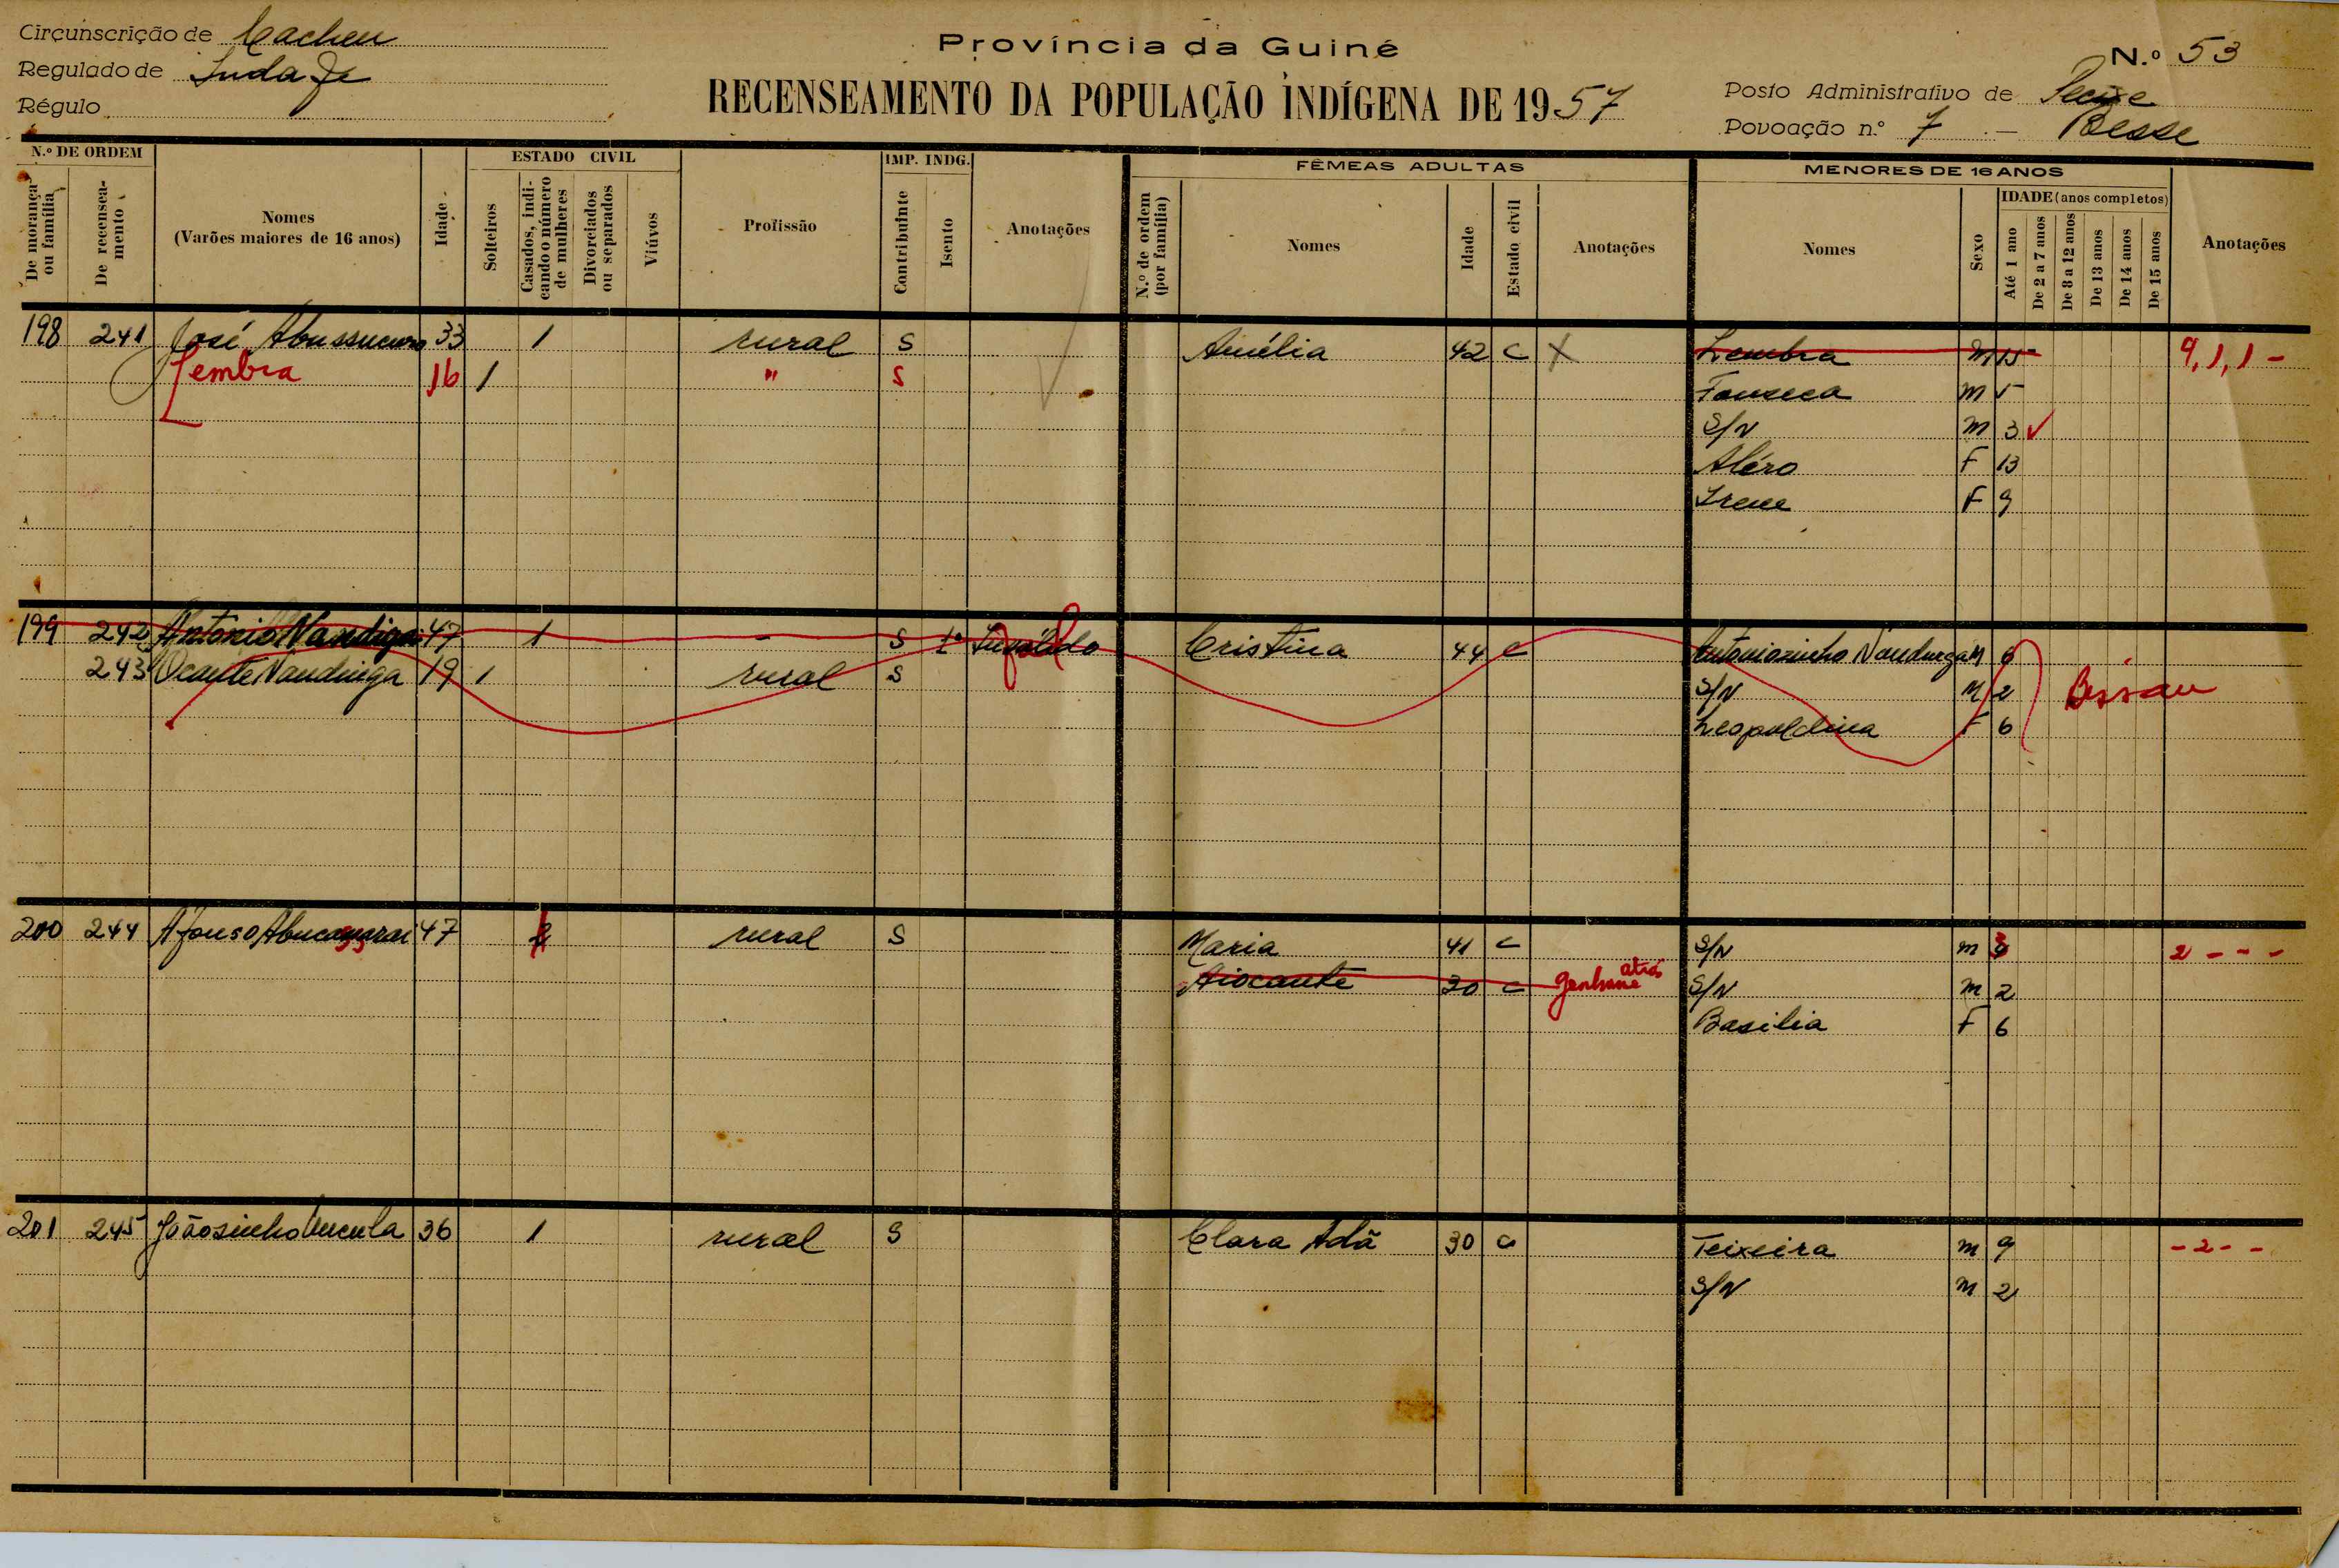 Circunscrição de Cacheu
Província da Guiné
N.º 53
Regulado de
RECENSEAMENTO DA POPULAÇÃO INDÍGENA DE 1957
Posto Administrativo de Pecixe
Régulo
Povoação n.º 7 — Besse
N.º DE ORDEM
De morança ou família
De recenseamento
Nomes
(Varões maiores de 16 anos)
Idade
ESTADO CIVIL
Solteiros
Casados, indicando o número de mulheres
Divorciados ou separados
Viúvos
Profissão
IMP. INDG.
Contribuinte
Isento
Anotações
FÊMEAS ADULTAS
N.º de ordem (por família)
Nomes
Idade
Estado civil
Anotações
MENORES DE 16 ANOS
Nomes
Sexo
IDADE (anos completos)
Até 1 ano
De 2 a 7 anos
De 8 a 12 anos
De 13 anos
De 14 anos
De 15 anos
Anotações
198 241 José 33 1 rural S Amélia 42 C X Lembra M 15 9,1,1 -
Lembra 16 1 " S Fonseca M 5
S/N M 3 ✓
Aléro F 13
Irene F 9
199 242 António Nandiga 47 1 - S Cristina 44 C Antoniozinho M 6
243 Ocante Nandinga 19 1 rural S S/N M 2 Bissau
Leopoldina F 6
200 244 Afonso 47 rural S Maria 41 C S/N M 2 - - -
Aiocante 30 C atrás S/N M 2
Basilia F 6
201 245 Joãosinho 36 1 rural S Clara Adã 30 C Teixeira M 9 - 2 - -
S/N M 2